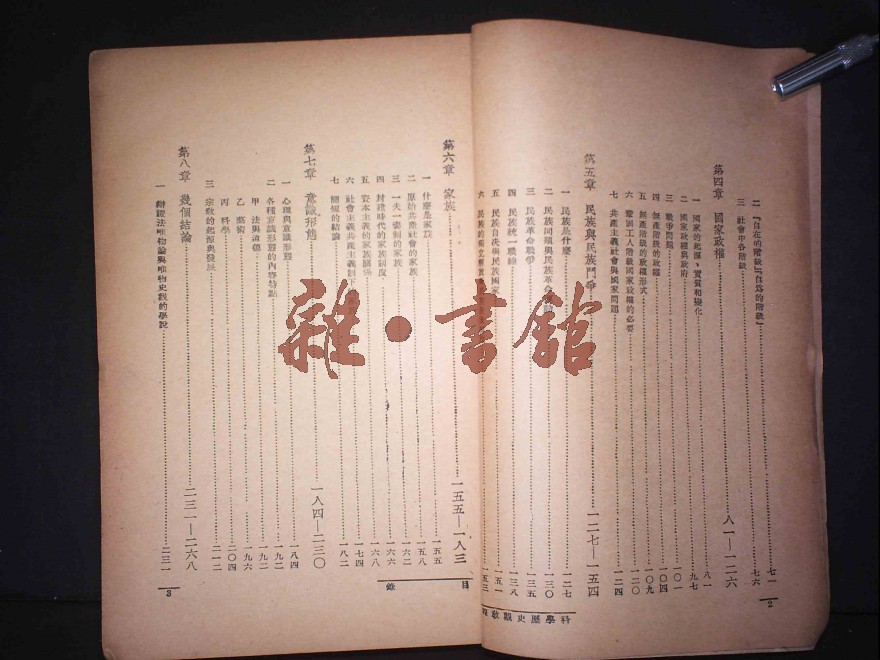 二 『自在的階級』『自爲的階級』………七一
三 社會中各階級………七六
第四章 國家政權………八一—一二六
一 國家的起源、實質和變化………八一
二 國家政權與政府………九七
三 戰爭問題………一〇一
四 無產階級的政權………一〇四
五 無產階級的政權形式………一〇九
六 鞏固工人階級國家政權的必要………一二〇
七 共產主義社會與國家問題………一二四
第五章 民族與民族鬥爭………一二七—一五四
一 民族是什麼………一二七
二 民族問題與民族革命………一三〇
三 民族革命戰爭………一三五
四 民族統一戰線………一三八
五 民族自決與民族國家………一五一
六 民族的獨立解放………一五三
2
科學歷史觀教程
目錄
第六章 家族………一五五—一八三
一 什麼是家族………一五五
二 原始共產社會的家族………一五八
三 一夫一妻制的家族………一六二
四 封建時代的家族制度………一六六
五 資本主義的家族關係………一六八
六 社會主義共產主義制下………一七四
七 簡短的結論………一八二
第七章 意識形態………一八四—二三〇
一 心理與意識形態………一八四
二 各種意識形態的內容特點………一九二
甲 法與道德………一九二
乙 藝術………一九六
丙 科學………二〇四
三 宗教的起源與發展………二一二
第八章 幾個結論………二三一—二六八
一 辯證法唯物論與唯物史觀的學說………二三一
3
雜·書館